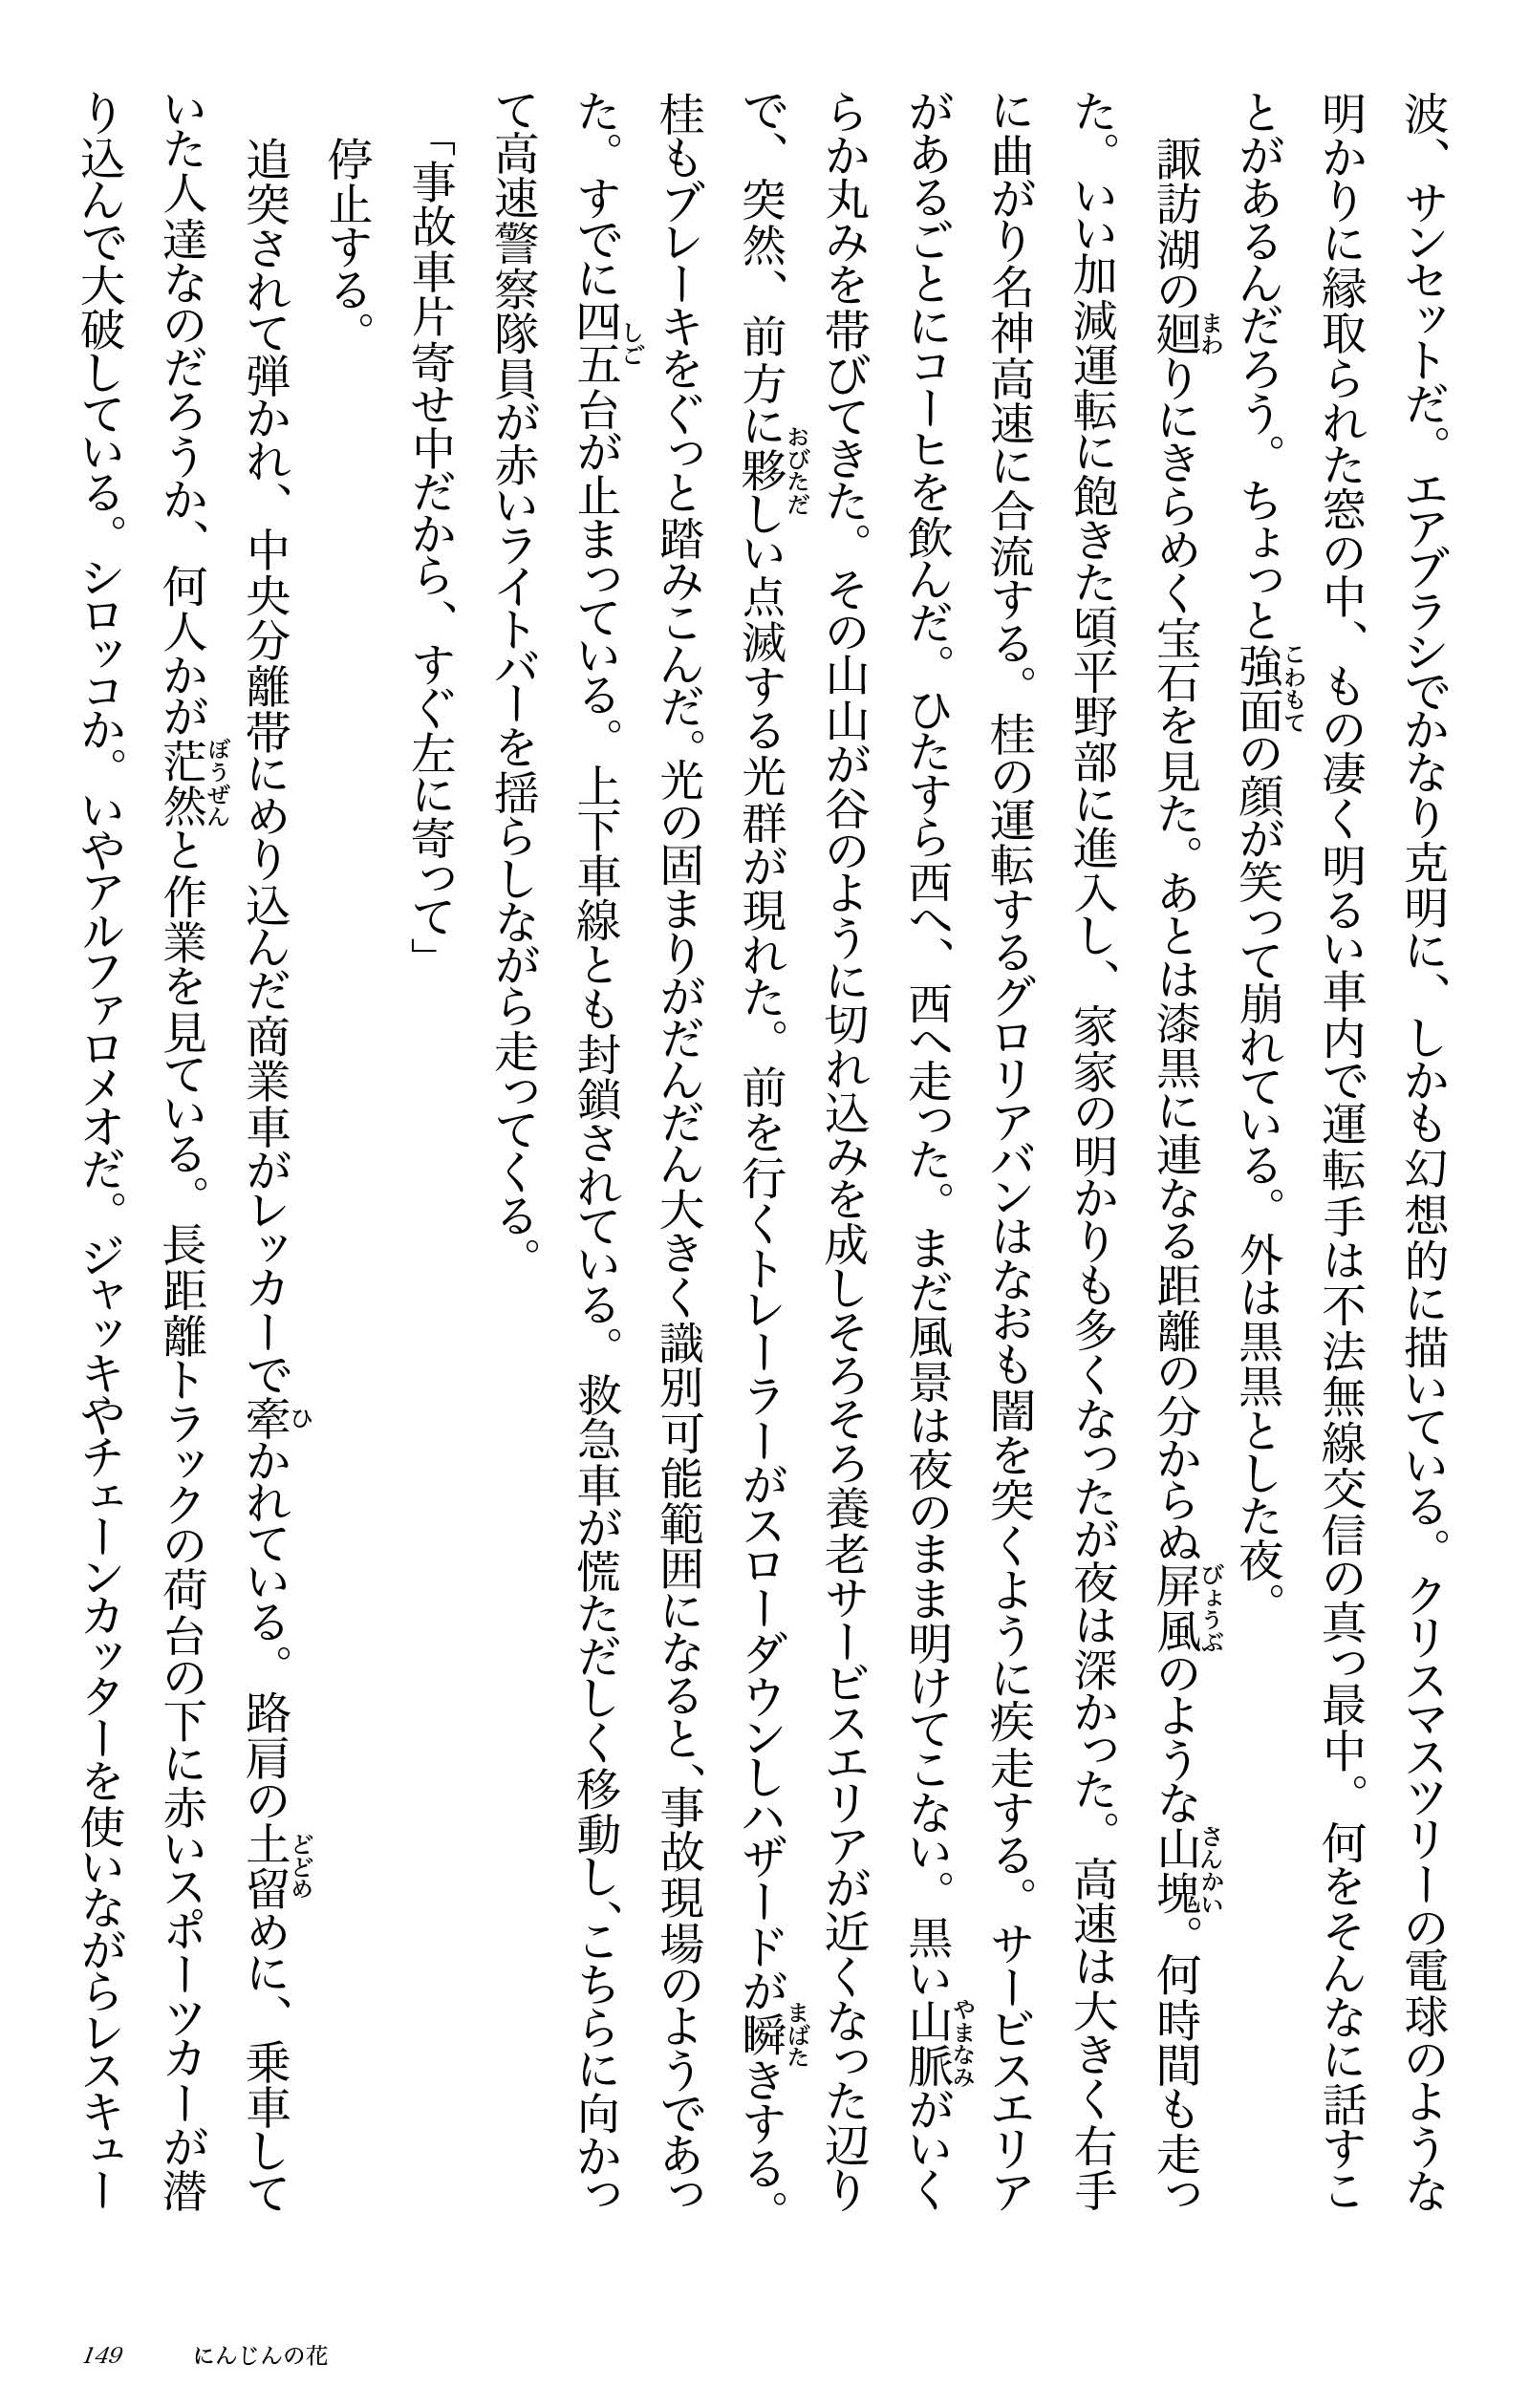 波、サンセットだ。エアブラシでかなり克明に、しかも幻想的に描いている。クリスマスツリーの電球のような
明かりに縁取られた窓の中、もの凄く明るい車内で運転手は不法無線交信の真っ最中。何をそんなに話すこ
とがあるんだろう。ちょっと強面の顔が笑って崩れている。外は黒黒とした夜。
諏訪湖の廻りにきらめく宝石を見た。あとは漆黒に連なる距離の分からぬ屏風のような山塊。何時間も走っ
た。いい加減運転に飽きた頃平野部に進入し、家家の明かりも多くなったが夜は深かった。高速は大きく右手
に曲がり名神高速に合流する。桂の運転するグロリアバンはなおも闇を突くように疾走する。サービスエリア
があるごとにコーヒを飲んだ。ひたすら西へ、西へ走った。まだ風景は夜のまま明けてこない。黒い山脈がいく
らか丸みを帯びてきた。その山山が谷のように切れ込みを成しそろそろ養老サービスエリアが近くなった辺り
で、突然、前方に夥しい点滅する光群が現れた。前を行くトレーラーがスローダウンしハザードが瞬きする。
桂もブレーキをぐっと踏みこんだ。光の固まりがだんだん大きく識別可能範囲になると、事故現場のようであっ
た。すでに四五台が止まっている。上下車線とも封鎖されている。救急車が慌ただしく移動し、こちらに向かっ
て高速警察隊員が赤いライトバーを揺らしながら走ってくる。
「事故車片寄せ中だから、すぐ左に寄って」
停止する。
追突されて弾かれ、中央分離帯にめり込んだ商業車がレッカーで牽かれている。路肩の土留めに、乗車して
いた人達なのだろうか、何人かが茫然と作業を見ている。長距離トラックの荷台の下に赤いスポーツカーが潜
り込んで大破している。シロッコか。いやアルファロメオだ。ジャッキやチェーンカッターを使いながらレスキュー
149 にんじんの花